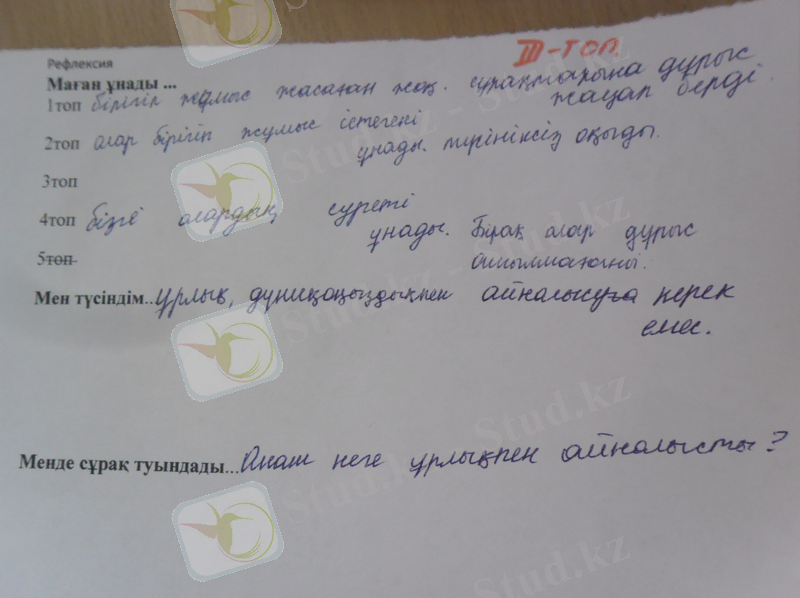 Рефлексия
III-топ
Маған ұнады ...
1топ бірігіп жұмыс жасаған жоқ. сұрақтарына дұрыс
жауап берді.
2топ олар бірігіп жұмыс істегені
ұнады. мүдіріксіз оқыды.
3топ
4топ бізге олардың суреті
ұнады. Бірақ олар дұрыс
5топ
Мен түсіндім..ұрлық, дүниқоңыздықпен айналысуға керек
емес.
Менде сұрақ туындады...Анаш неге ұрлықпен айналысты?
Stud.kz
Stud.kz
Stud.kz
Stud.kz